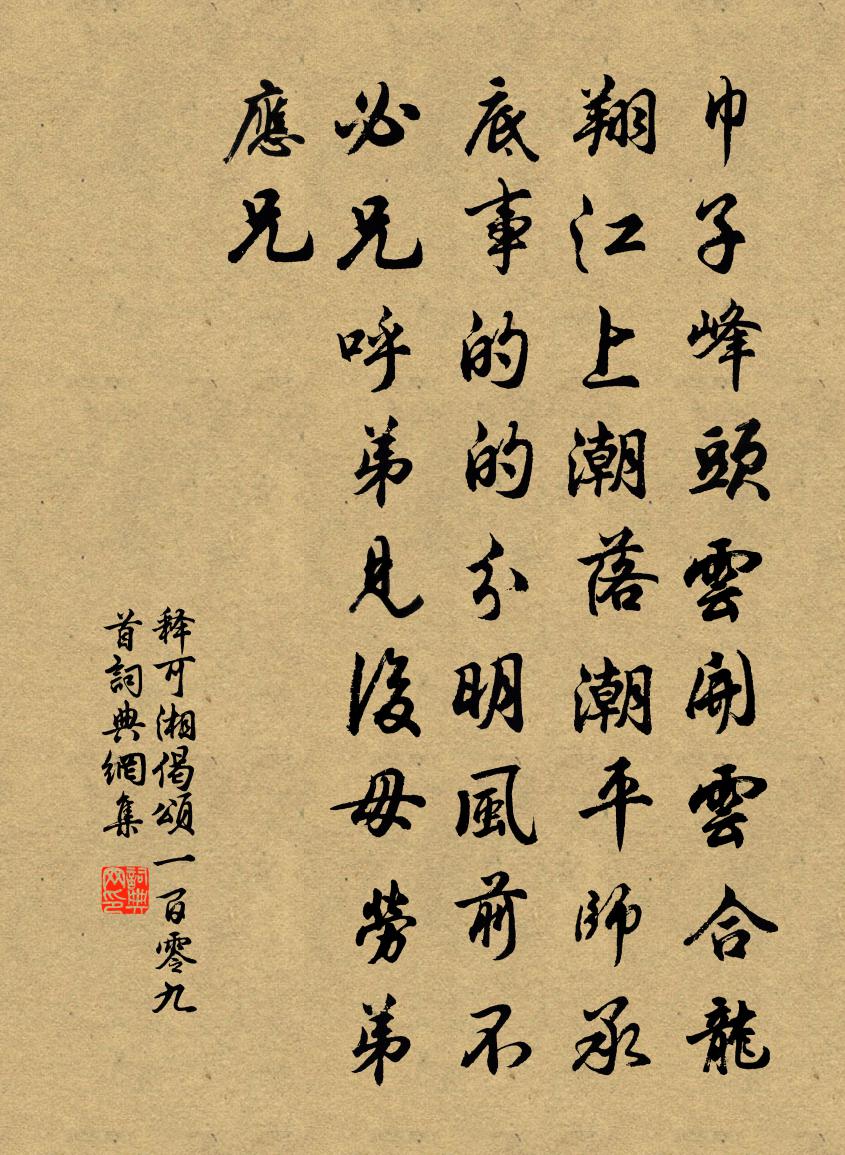 巾子峰頭雲開雲合龍
翔江上潮落潮平師承
底事的的分明風前不
必兄呼弟見後毋勞弟
應兄
释可湘偈頌一百零九
首詞典網集
詞典网印